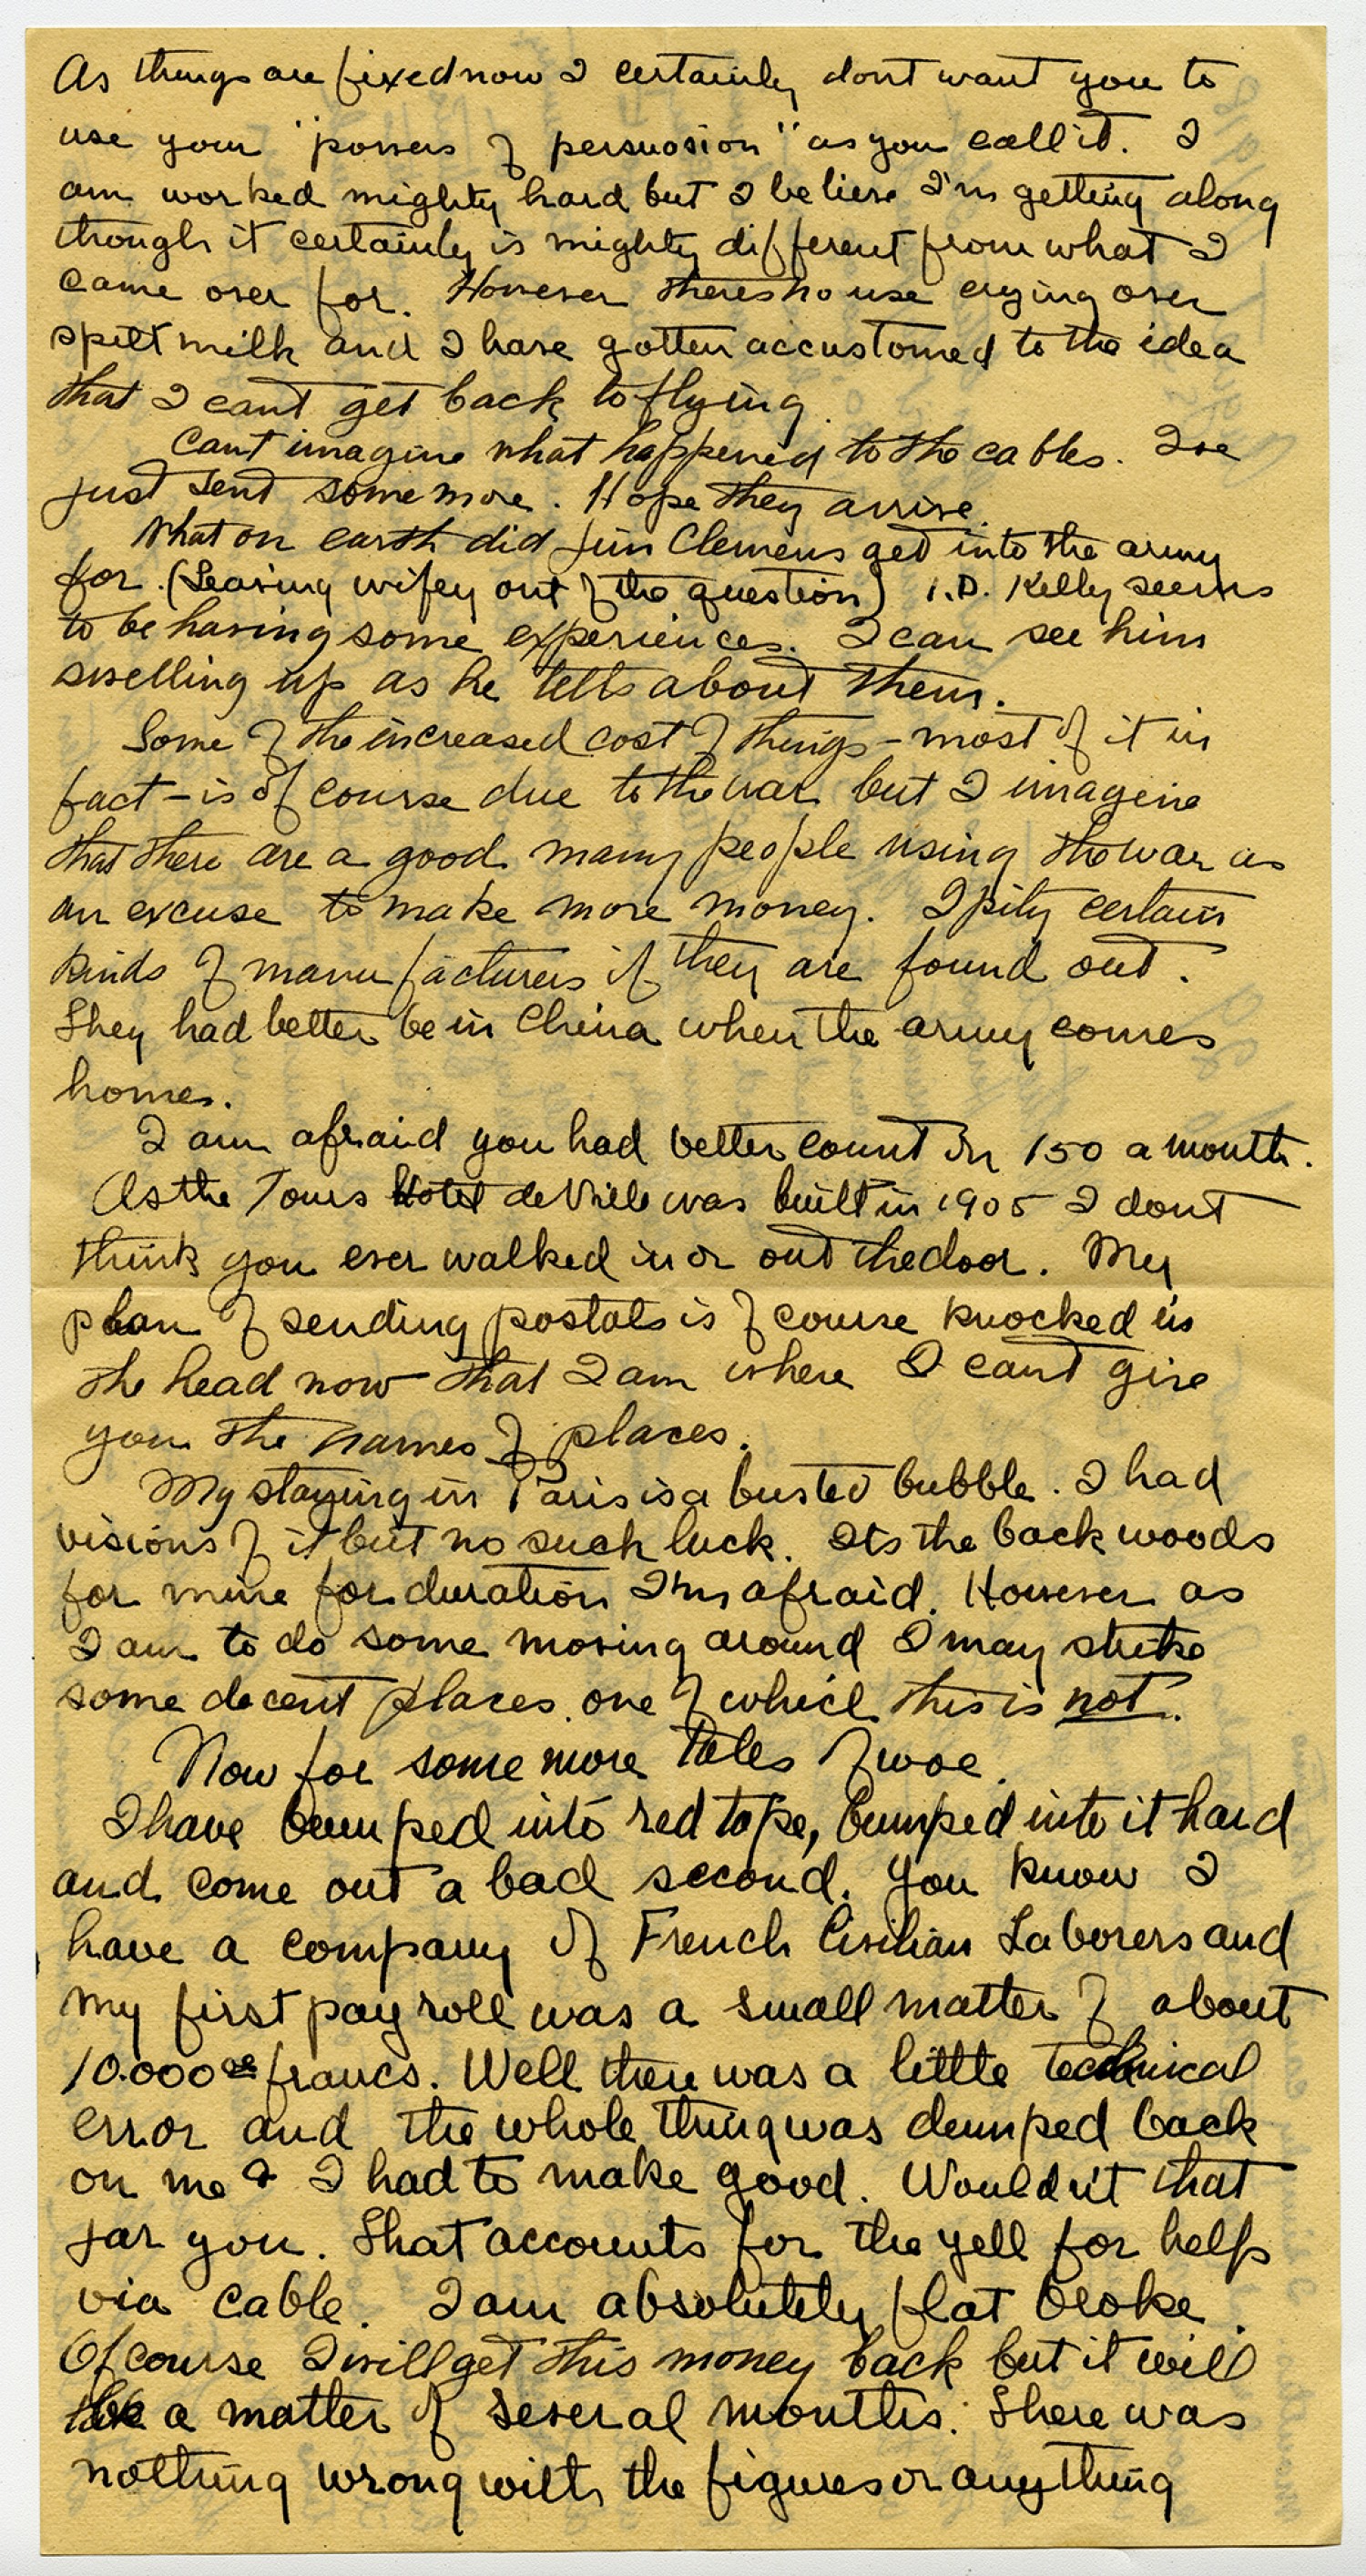 As things are fixed now I certainly dont want you to
use your "powers of persuasion" as you call it. I
am worked mighty hard but I believe I'm getting along
though it certainly is mighty different from what I
came over for. However theres no use crying over
spilt milk and I have gotten accustomed to the idea
that I cant get back to flying.
Cant imagine what happened to the cables. Ive
just sent some more. Hope they arrive.
What on earth did Jim Clemens get into the army
for. (Leaving wifey out of the question) I.D. Kelly seems
to be having some experiences. I can see him
swelling up as he tells about them.
Some of the increased cost of things - most of it in
fact - is of course due to the war but I imagine
that there are a good many people using the war as
an excuse to make more money. I pity certain
kinds of manufacturers if they are found out.
They had better be in China when the army comes
home.
I am afraid you had better count on 150 a month.
As the Tours Hotel de Ville was built in 1905 I dont
think you ever walked in or out the door. My
plan of sending postals is of course knocked in
the head now that I am where I cant give
you the names of places.
My staying in Paris is a busted bubble. I had
visions of it but no such luck. Its the back woods
for mine for duration I'm afraid. However as
I am to do some moving around I may strike
some decent places, one of which this is not.
Now for some more tales of woe.
I have bumped into red tape, bumped into it hard
and come out a bad second. You know I
have a company of French Civilian Laborers and
my first pay roll was a small matter of about
10.000 00 francs. Well there was a little technical
error and the whole thing was dumped back
on me & I had to make good. Wouldn't that
jar you. That accounts for the yell for help
via cable. I am absolutely flat broke.
Of course I will get this money back but it will
be a matter of several months. There was
nothing wrong with the figures or anything